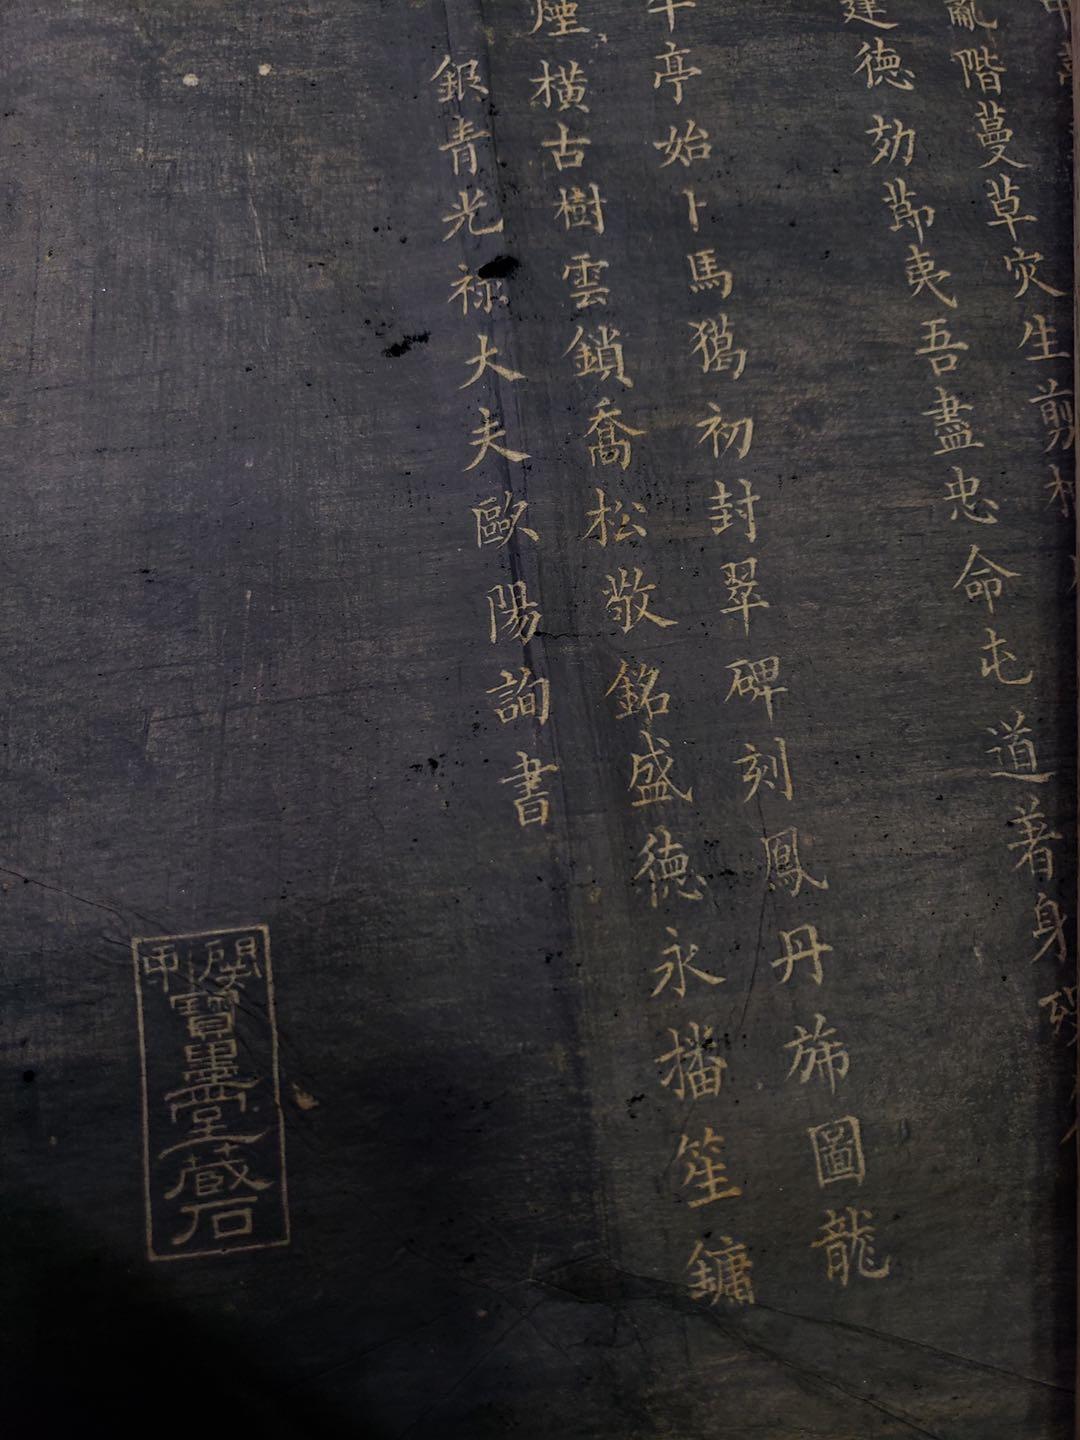 亂階蔓草灾生剪
建德効節夷吾盡忠命屯道著身
牛亭始卜馬獦初封翠碑刻鳳丹旐圖龍
煙橫古樹雲鎖喬松敬銘盛德永播笙鏞
銀青光祿大夫歐陽詢書
關
寶壘堂藏石